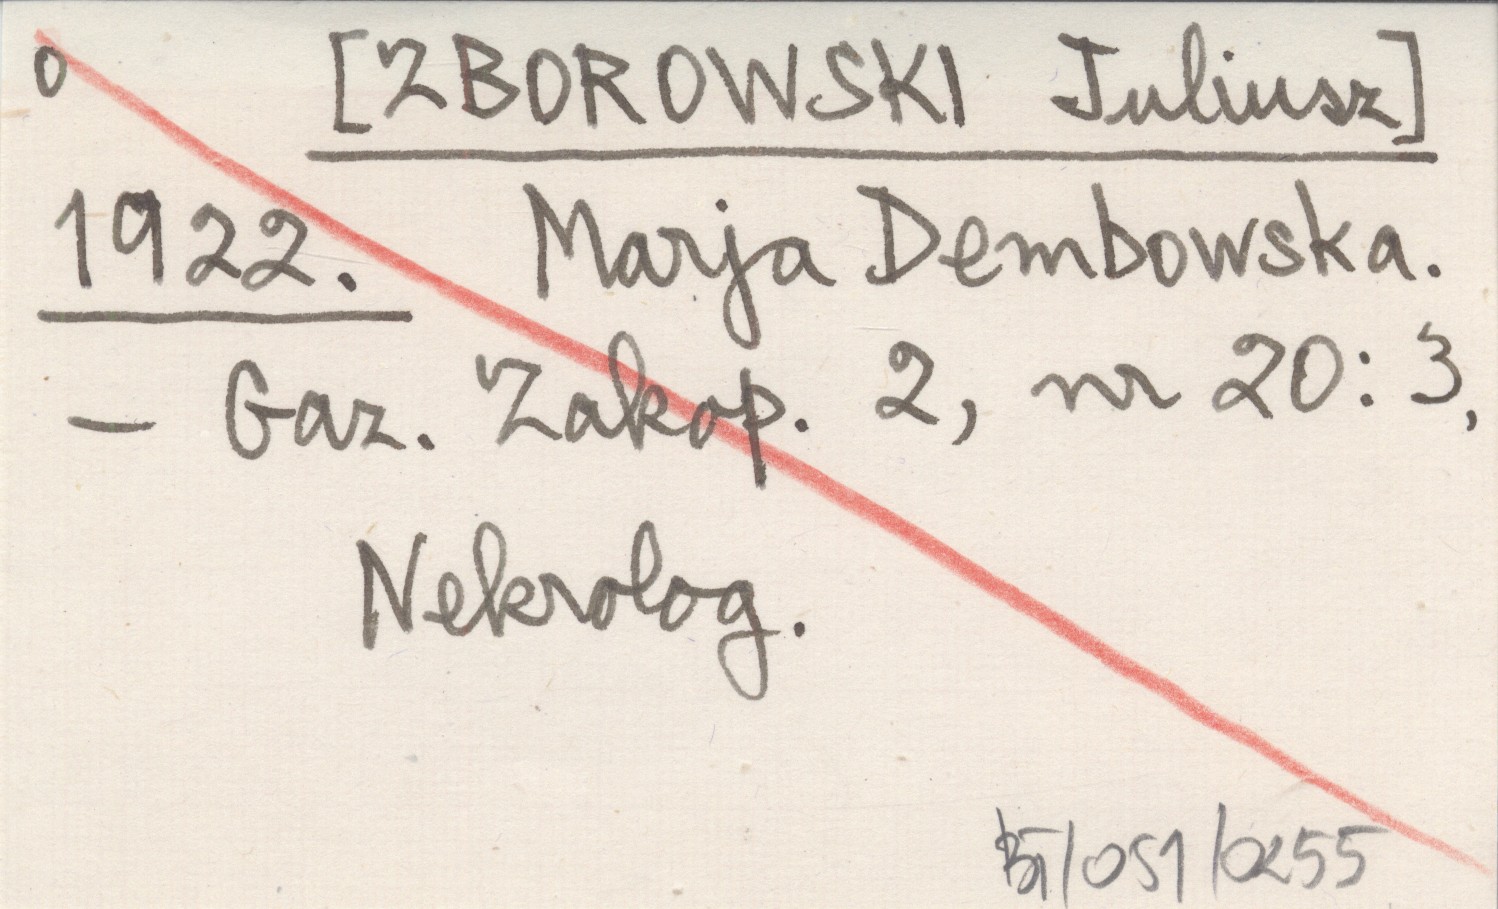 o [ZBOROWSKI Juliusz]
1922. Marja Dembowska.
— Gaz. Zakop. 2, nr 20: 3,
Nekrolog.
BT/051/0255